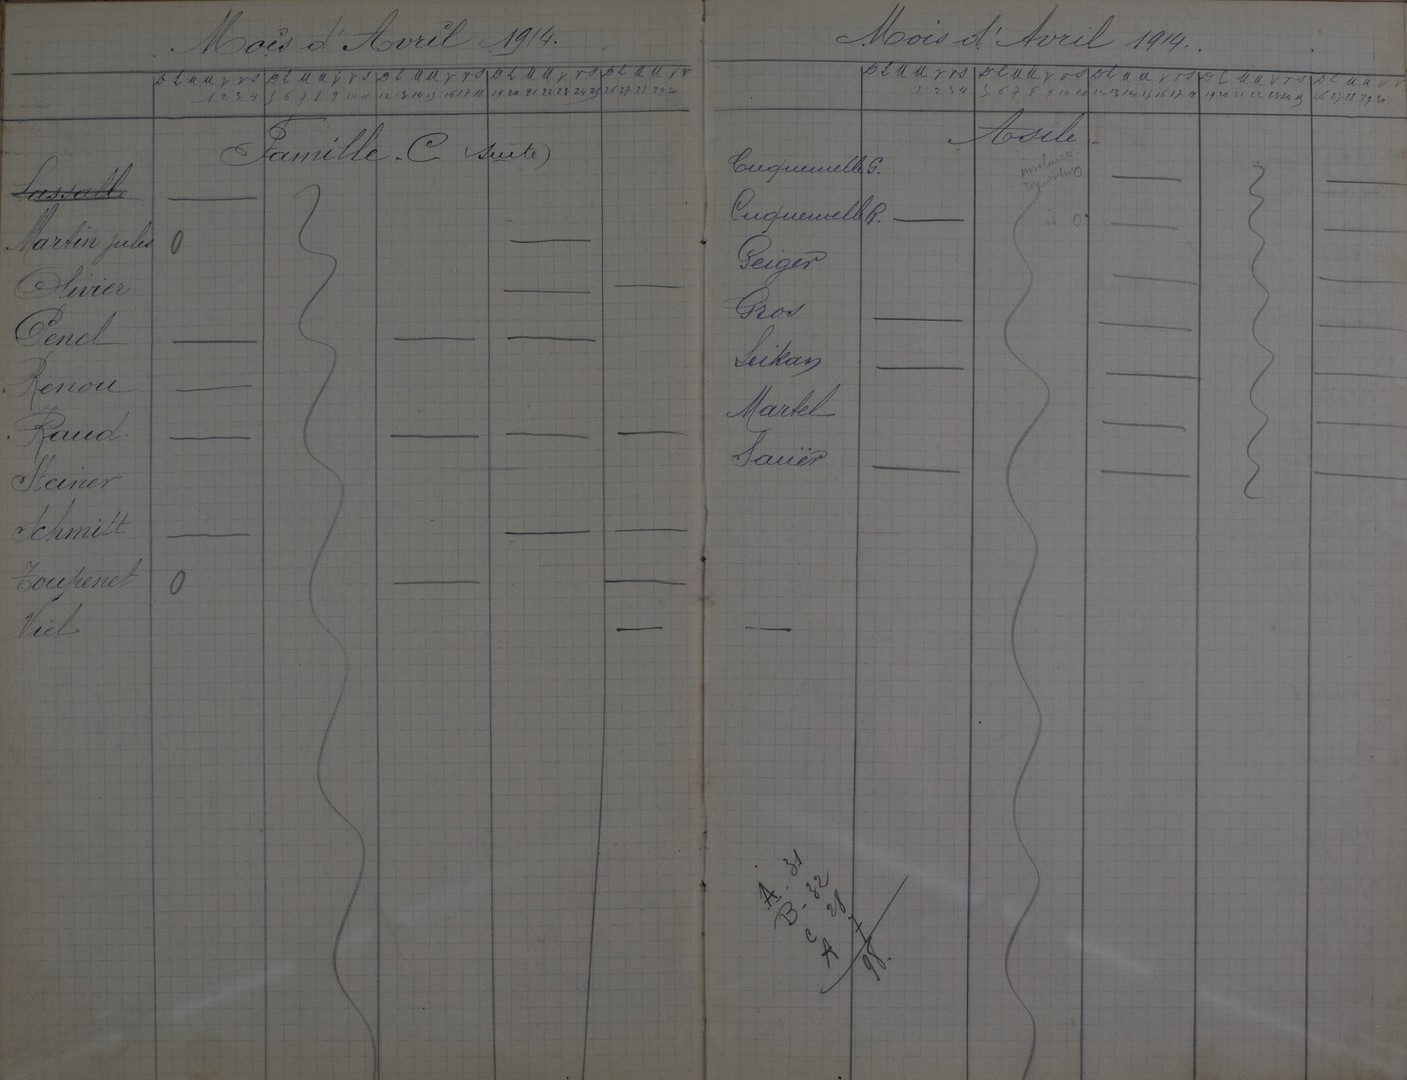 Mois d'Avril 1914.
D L M M J V S D L M M J V S D L M M J V S D L M M J V S D L M M J V
1 2 3 4 5 6 7 8 9 10 11 12 13 14 15 16 17 18 19 20 21 22 23 24 25 26 27 28 29 30
Famille . C (suite)
Lassalle
Martin jules 0
Olivier
Penel
Renou
Raud.
Steiner
Schmitt
Toupenet 0
Viel
Mois d'Avril 1914.
D L M M J V S D L M M J V S D L M M J V S D L M M J V S D L M M J V
1 2 3 4 5 6 7 8 9 10 11 12 13 14 15 16 17 18 19 20 21 22 23 24 25 26 27 28 29 30
Asile.
Cuquemelle G. 0
Cuquemelle R. 0
Geiger
Gros
Leikan
Martel
Sauër
A. 31
B. 32
C 28
A 7
98.